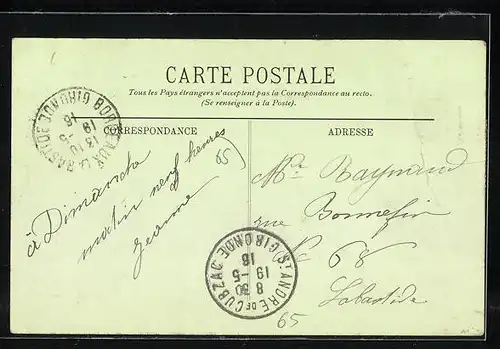 CARTE POSTALE
Tous les Pays étrangers n'acceptent pas la Correspondance au recto.
(Se renseigner à la Poste).
CORRESPONDANCE
ADRESSE
à Dimanche
matin neuf heures
Jeanne
65
Mr Raymond
rue Bonnefin
No 68
Labastide
BORDEAUX LA BASTIDE GIRONDE
13 10
19-5
16
ST ANDRE DE CUBZAC GIRONDE
8 30
19-5
16
65